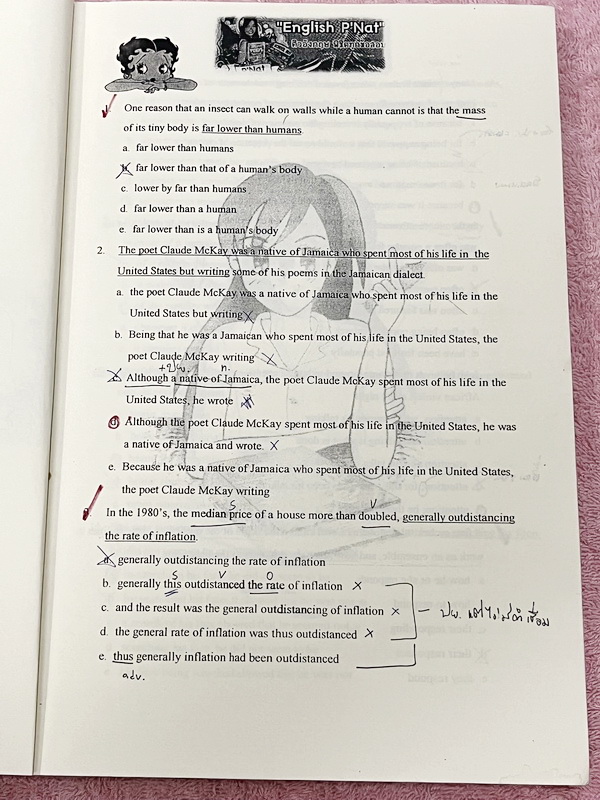 "English P'Nat"
One reason that an insect can walk on walls while a human cannot is that the mass
of its tiny body is far lower than humans
a. far lower than humans
b. far lower than that of a human's body
c. lower by far than humans
d. far lower than a human
e. far lower than is a human's body
2. The poet Claude McKay was a native of Jamaica who spent most of his life in the
United States but writing some of his poems in the Jamaican dialect.
a. the poet Claude McKay was a native of Jamaica who spent most of his life in the
United States but writing X
b. Being that he was a Jamaican who spent most of his life in the United States, the
poet Claude McKay writing X
n.
Although a native of Jamaica, the poet Claude McKay spent most of his life in the
United States, he wrote
d. Although the poet Claude McKay spent most of his life in the United States, he was
a native of Jamaica and wrote. X
e. Because he was a native of Jamaica who spent most of his life in the United States,
the poet Claude McKay writing
S V
In the 1980's, the median price of a house more than doubled, generally outdistancing
the rate of inflation.
a. generally outdistancing the rate of inflation
S V O
b. generally this outdistanced the rate of inflation X
c. and the result was the general outdistancing of inflation X
d. the general rate of inflation was thus outdistanced X
e. thus generally inflation had been outdistanced
adv.